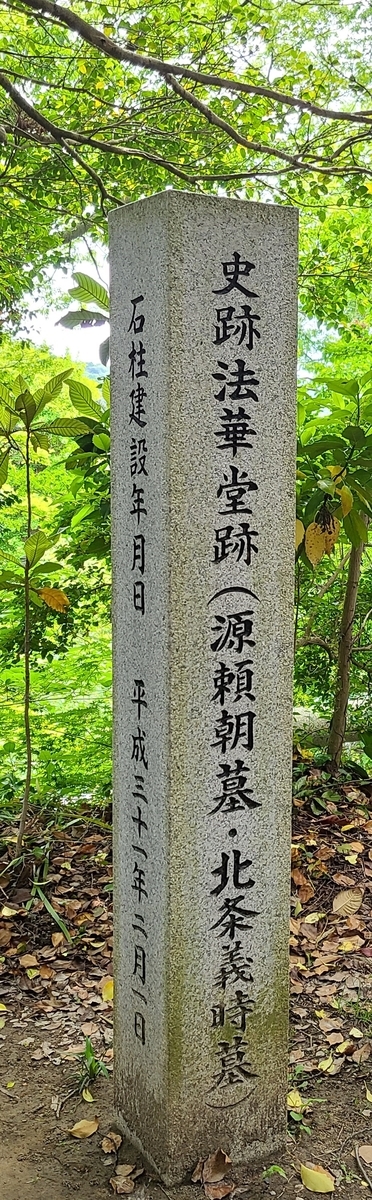 史跡法華堂跡（源頼朝墓・北条義時墓）
石柱建設年月日　平成三十一年二月一日